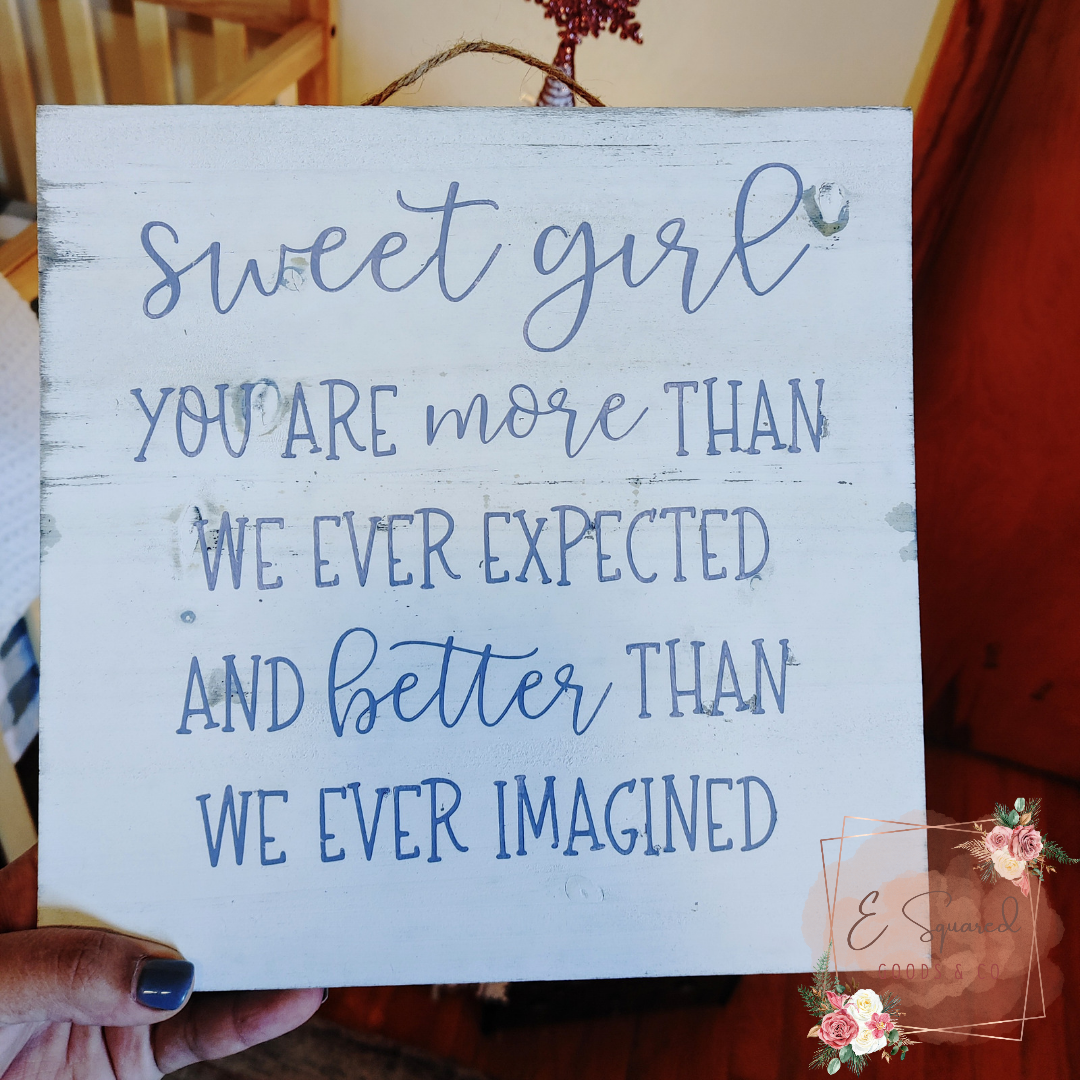 sweet girl
YOU ARE more THAN
WE EVER EXPECTED
AND better THAN
WE EVER IMAGINED
E Squared
GOODS & CO